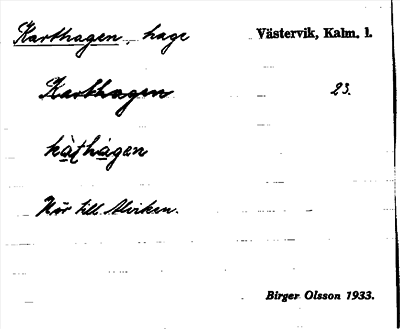 Karthagen, hage Västervik, Kalm. l.
Karthagen 23.
kàṭhàgen
Hör till Alviken.
Birger Olsson 1933.